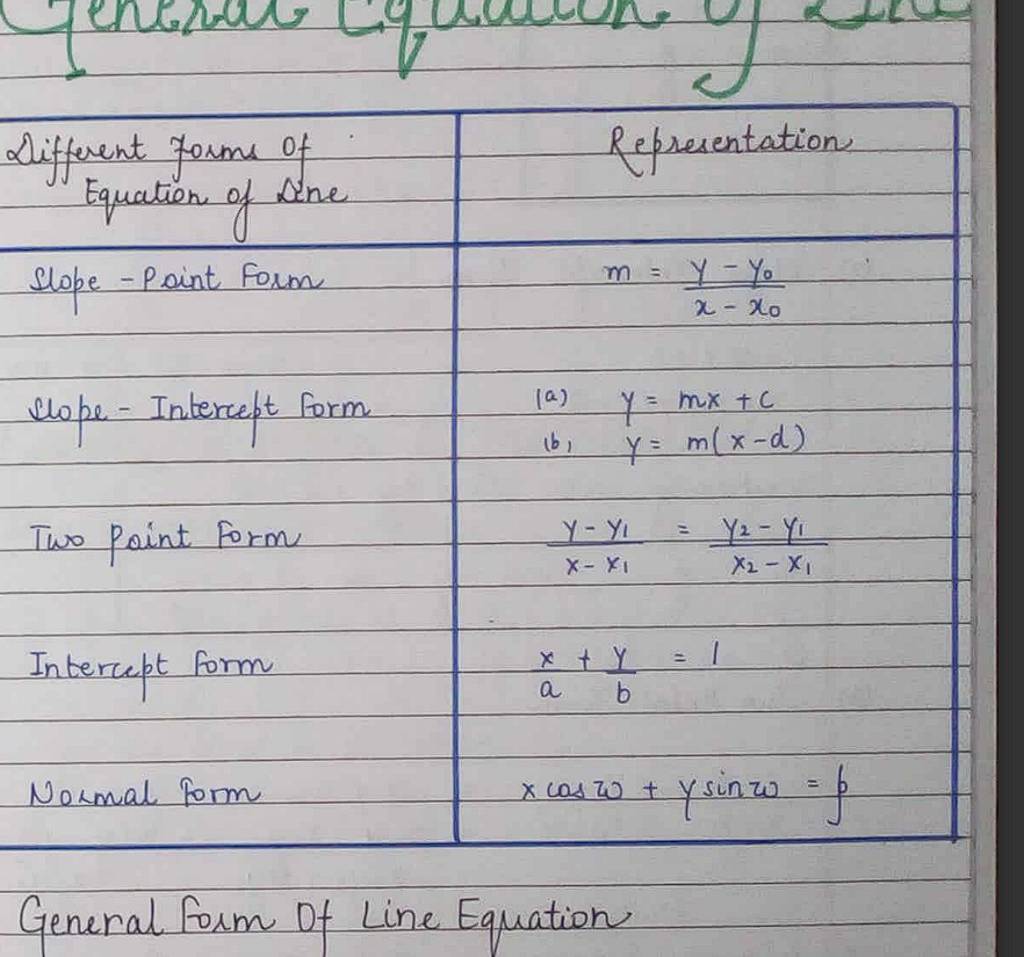 General Equation Of Line
Different Forms Of
Equation of Line
Representation
Slope - Point Form
m = y - y₀ / x - x₀
Slope - Intercept Form
(a) y = mx + c
(b) y = m(x - d)
Two Point Form
y - y₁ / x - x₁ = y₂ - y₁ / x₂ - x₁
Intercept Form
x/a + y/b = 1
Normal Form
x cos ω + y sin ω = p
General Form Of Line Equation